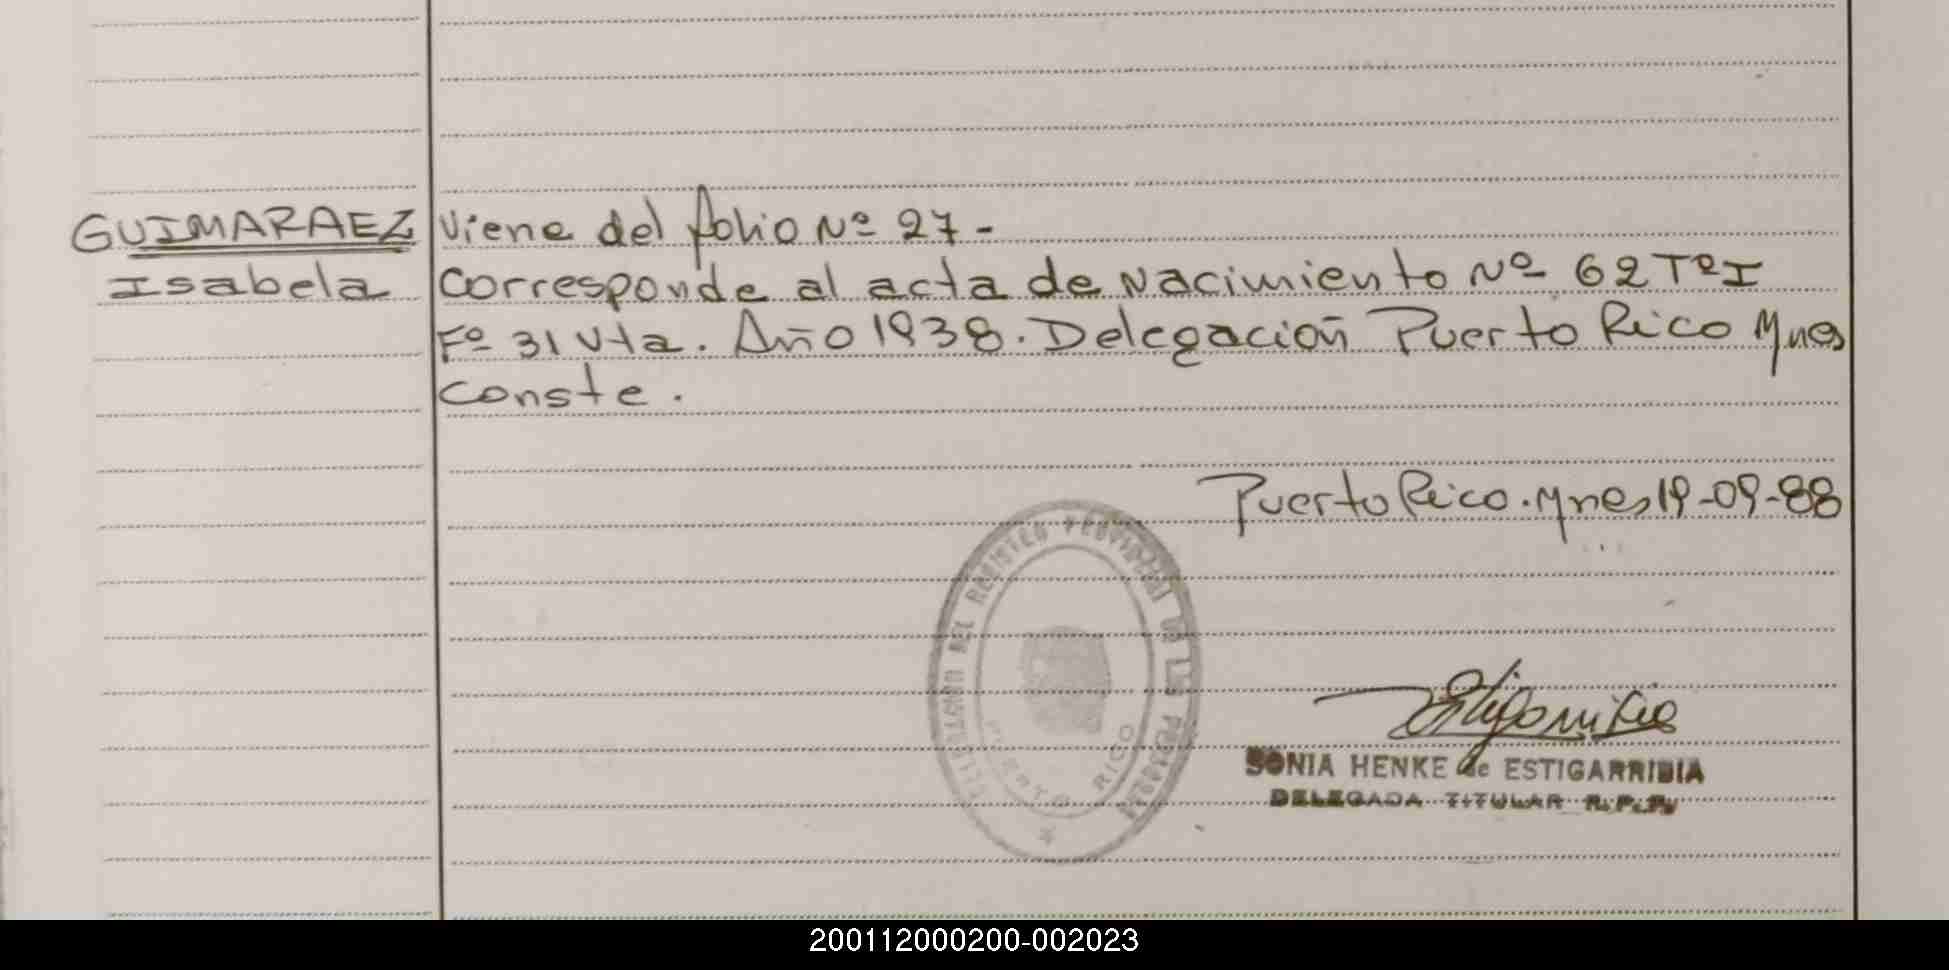 GUIMARAEZ
Isabela
Viene del folio Nº 27-
Corresponde al acta de Nacimiento Nº 62 Tº I
Fº 31 Vta. Año 1938. Delegación Puerto Rico Mnes
conste.
Puerto Rico. Mnes 19-09-88
DELEGACION DEL REGISTRO PROVINCIAL DE LAS PERSONAS
PUERTO RICO
SONIA HENKE de ESTIGARRIBIA
DELEGADA TITULAR R.P.P.
200112000200-002023